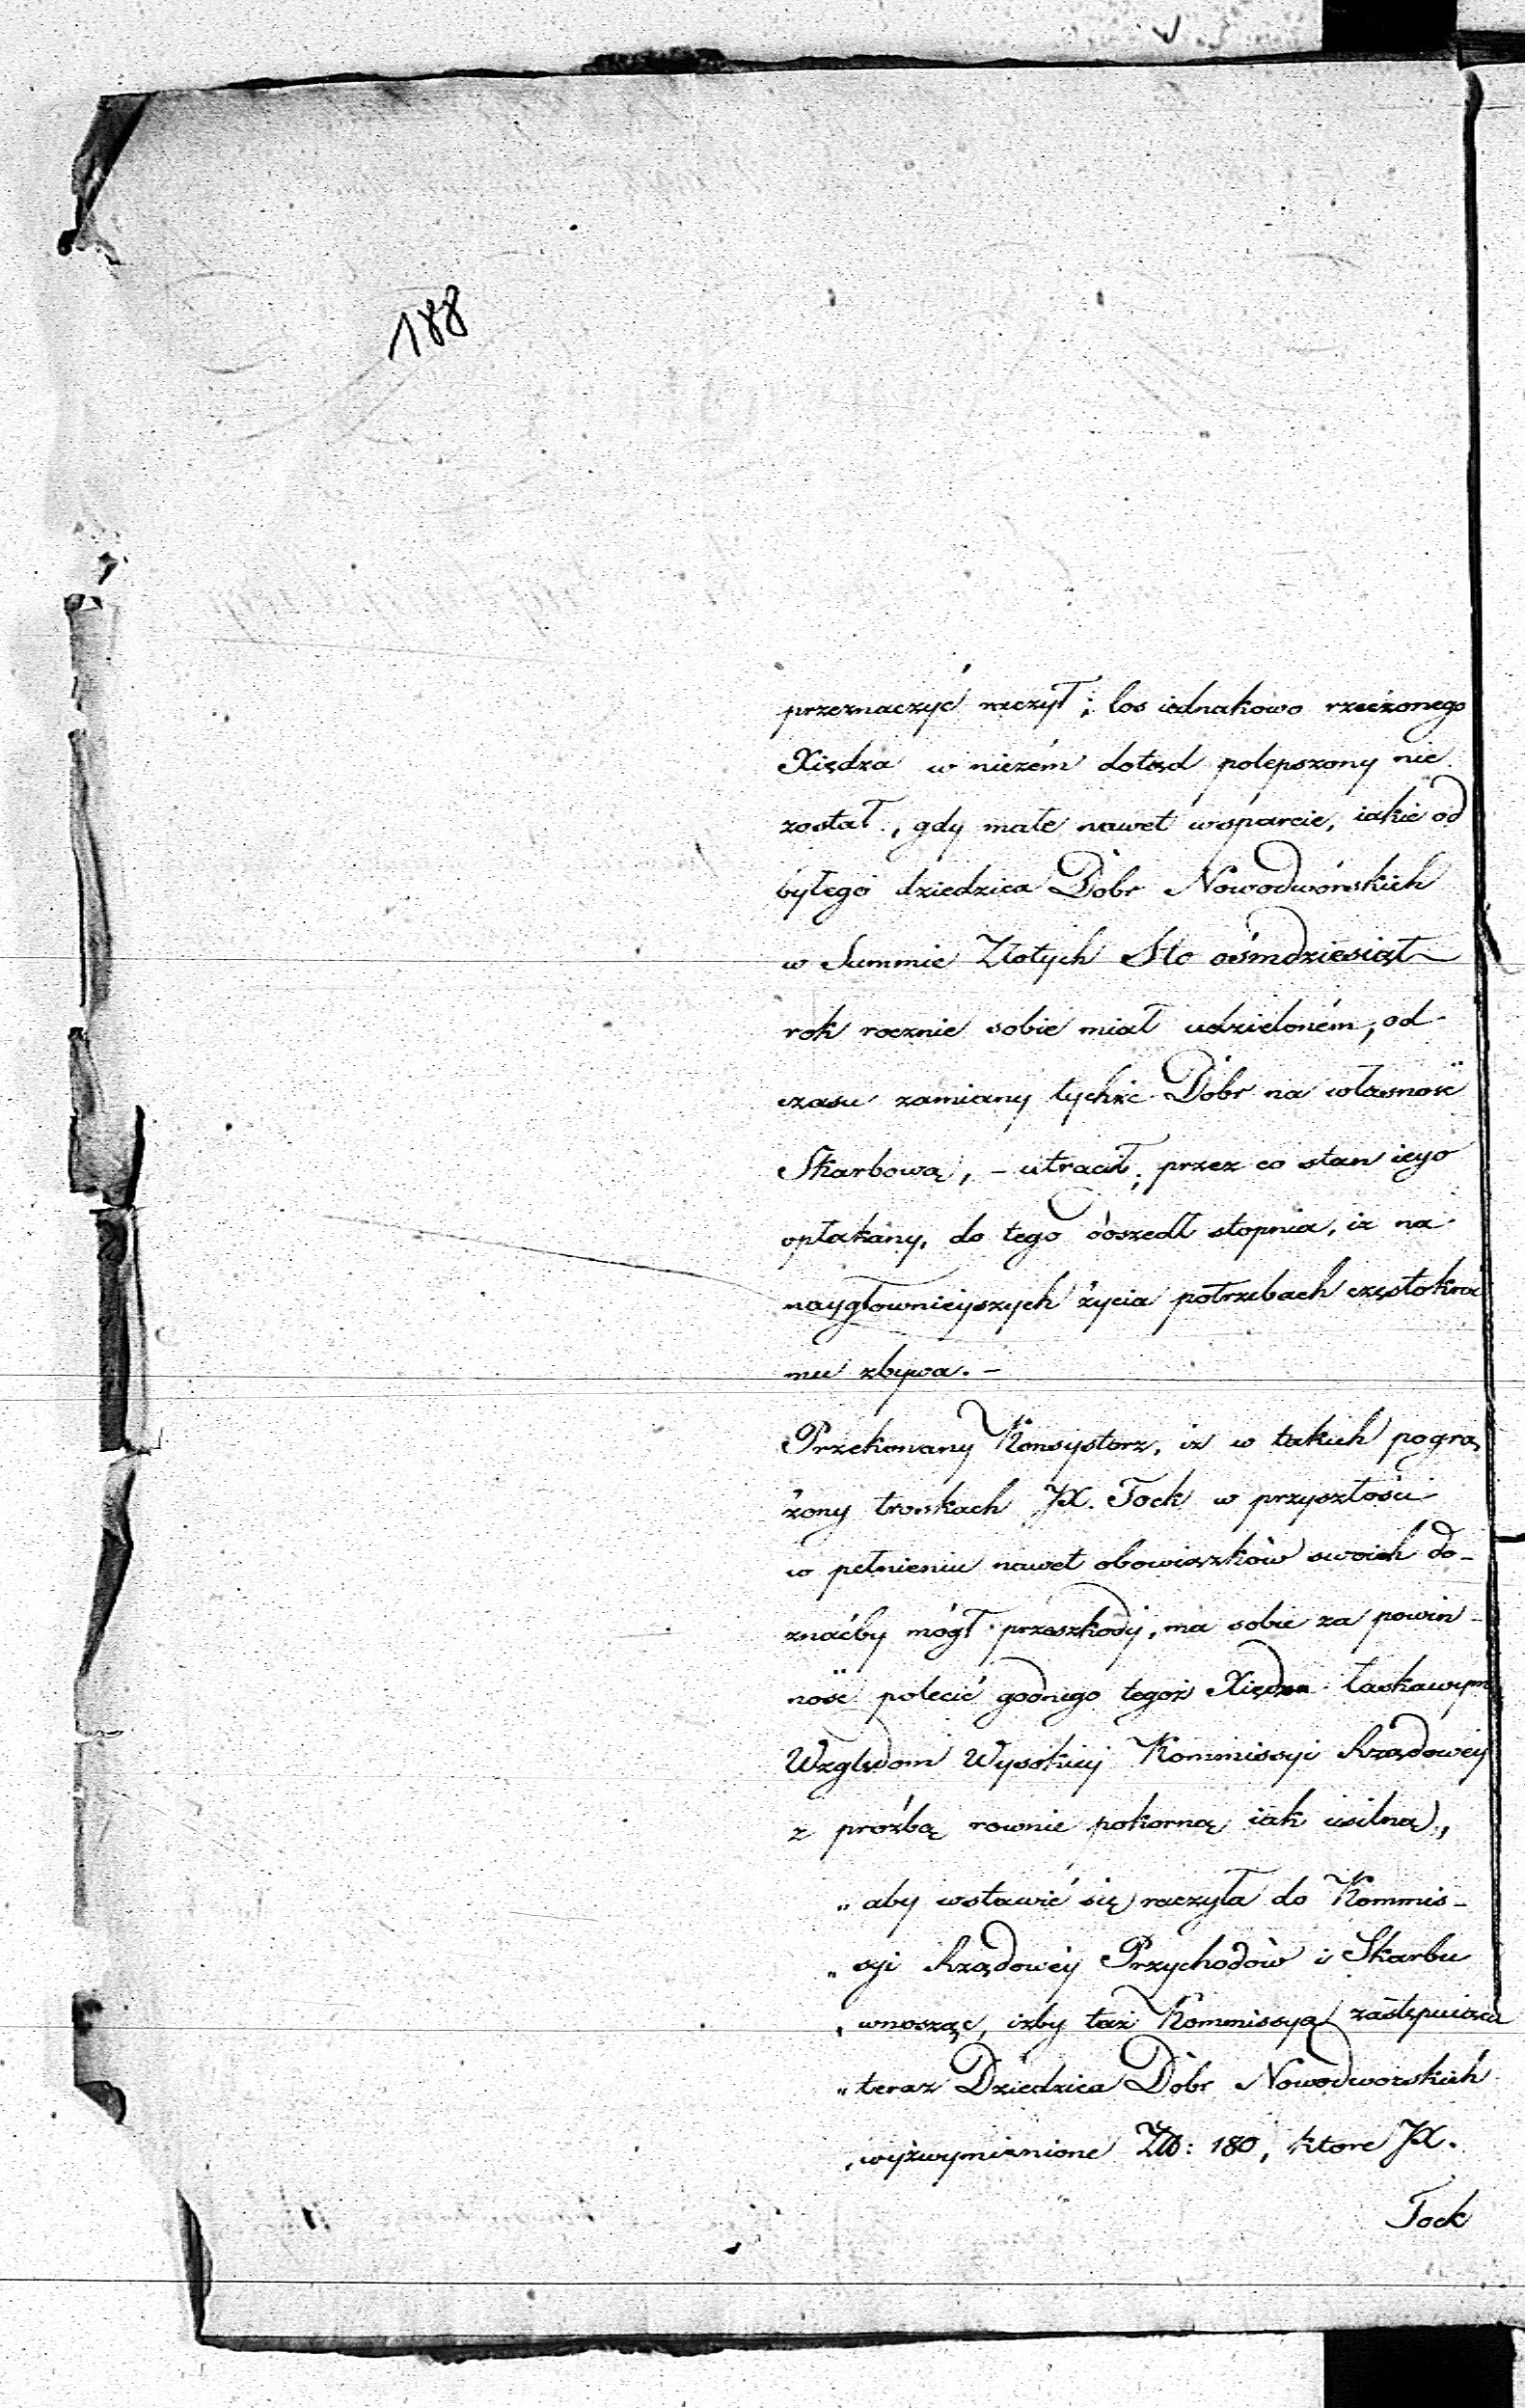 188
przeznaczyć raczył; los iednakowo rzeczonego
Xiędza w niczém dotąd polepszony nie
został, gdy małe nawet wsparcie, iakie od
byłego dziedzica Dóbr Nowodwórskich
w Summie Złotych Sto ośmdziesiąt
rok rocznie sobie miał udzieloném, od
czasu zamiany tychże Dóbr na własność
Skarbową, – utracił; przez co stan iego
opłakany, do tego doszedł stopnia, iż na
naygłownieyszych życia potrzebach częstokroć
mu zbywa. –
Przekonany Konsystorz, iż w takich pogrą
żony troskach JX. Tock w przyszłości
w pełnieniu nawet obowiązków swoich do-
znaćby mógł przeszkody, ma sobie za powin-
ność polecić godnego tegoż Xiędza łaskawym
Względom Wysokiey Kommissyi Rządowey
z prośbą rownie pokorną iak usilną,
„ aby wstawić się raczyła do Kommis-
„ syi Rządowéy Przychodów i Skarbu
„ wnosząc, iżby taż Kommissya zastępuiąca
„ teraz Dziedzica Dóbr Nowodworskich
„ wyżwymienione Złł: 180, ktore JX.
Tock